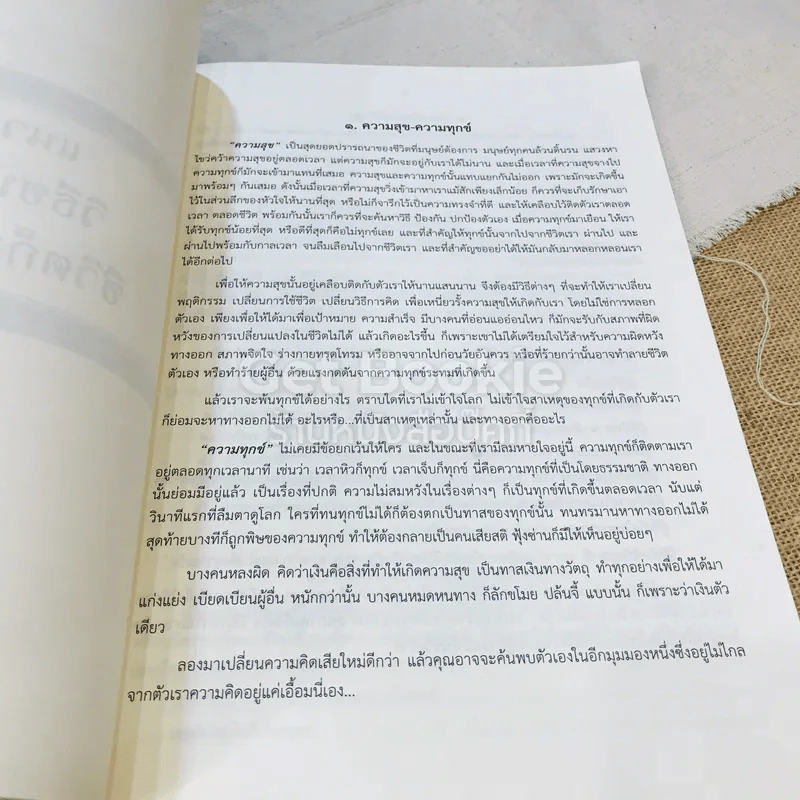 ๑. ความสุข-ความทุกข์
"ความสุข" เป็นสุดยอดปรารถนาของชีวิตที่มนุษย์ต้องการ มนุษย์ทุกคนล้วนดิ้นรน แสวงหา
ไขว่คว้าความสุขอยู่ตลอดเวลา แต่ความสุขก็มักจะอยู่กับเราได้ไม่นาน และเมื่อเวลาที่ความสุขจางไป
ความทุกข์ก็มักจะเข้ามาแทนที่เสมอ ความสุขและความทุกข์นั้นแทบแยกกันไม่ออก เพราะมักจะเกิดขึ้น
มาพร้อมๆ กันเสมอ ดังนั้นเมื่อเวลาที่ความสุขวิ่งเข้ามาหาเราแม้สักเพียงเล็กน้อย ก็ควรที่จะเก็บรักษาเอา
ไว้ในส่วนลึกของหัวใจให้นานที่สุด หรือไม่ก็จารึกไว้เป็นความทรงจำที่ดี และให้เคลือบไว้ติดตัวเราตลอด
เวลา ตลอดชีวิต พร้อมกันนั้นเราก็ควรที่จะค้นหาวิธี ป้องกัน ปกป้องตัวเอง เมื่อความทุกข์มาเยือน ให้เรา
ได้รับทุกข์น้อยที่สุด หรือดีที่สุดก็คือไม่ทุกข์เลย และที่สำคัญให้ทุกข์จากไปจากชีวิตเรา ผ่านไป และ
ผ่านไปพร้อมกับกาลเวลา จนลืมเลือนไปจากชีวิตเรา และที่สำคัญขออย่าได้ให้มันกลับมาหลอกหลอนเรา
ได้อีกต่อไป
เพื่อให้ความสุขนั้นอยู่เคลือบติดกับตัวเราให้นานแสนนาน จึงต้องมีวิธีต่างๆ ที่จะทำให้เราเปลี่ยน
พฤติกรรม เปลี่ยนการใช้ชีวิต เปลี่ยนวิธีการคิด เพื่อเหนี่ยวรั้งความสุขให้เกิดกับเรา โดยไม่ใช่การหลอก
ตัวเอง เพียงเพื่อให้ได้มาเพื่อเป้าหมาย ความสำเร็จ มีบางคนที่อ่อนแออ่อนไหว ก็มักจะรับกับสภาพที่ผิด
หวังของการเปลี่ยนแปลงในชีวิตไม่ได้ แล้วเกิดอะไรขึ้น ก็เพราะเขาไม่ได้เตรียมใจไว้สำหรับความผิดหวัง
ทางออก สภาพจิตใจ ร่างกายทรุดโทรม หรืออาจจากไปก่อนวัยอันควร หรือที่ร้ายกว่านั้นอาจทำลายชีวิต
ตัวเอง หรือทำร้ายผู้อื่น ด้วยแรงกดดันจากความทุกข์ระทมที่เกิดขึ้น
แล้วเราจะพ้นทุกข์ได้อย่างไร ตราบใดที่เราไม่เข้าใจโลก ไม่เข้าใจสาเหตุของทุกข์ที่เกิดกับตัวเรา
ก็ย่อมจะหาทางออกไม่ได้ อะไรหรือ...ที่เป็นสาเหตุเหล่านั้น และทางออกคืออะไร
"ความทุกข์" ไม่เคยมีข้อยกเว้นให้ใคร และในขณะที่เรามีลมหายใจอยู่นี้ ความทุกข์ก็ติดตามเรา
อยู่ตลอดทุกเวลานาที เช่นว่า เวลาหิวก็ทุกข์ เวลาเจ็บก็ทุกข์ นี่คือความทุกข์ที่เป็นโดยธรรมชาติ ทางออก
นั้นย่อมมีอยู่แล้ว เป็นเรื่องที่ปกติ ความไม่สมหวังในเรื่องต่างๆ ก็เป็นทุกข์ที่เกิดขึ้นตลอดเวลา นับแต่
วินาทีแรกที่ลืมตาดูโลก ใครที่ทนทุกข์ไม่ได้ก็ต้องตกเป็นทาสของทุกข์นั้น ทนทรมานหาทางออกไม่ได้
สุดท้ายบางทีก็ถูกพิษของความทุกข์ ทำให้ต้องกลายเป็นคนเสียสติ ฟุ้งซ่านก็มีให้เห็นอยู่บ่อยๆ
บางคนหลงผิด คิดว่าเงินคือสิ่งที่ทำให้เกิดความสุข เป็นทาสเงินทางวัตถุ ทำทุกอย่างเพื่อให้ได้มา
แก่งแย่ง เบียดเบียนผู้อื่น หนักกว่านั้น บางคนหมดหนทาง ก็ลักขโมย ปล้นจี้ แบบนั้น ก็เพราะว่าเงินตัว
เดียว
ลองมาเปลี่ยนความคิดเสียใหม่ดีกว่า แล้วคุณอาจจะค้นพบตัวเองในอีกมุมมองหนึ่งซึ่งอยู่ไม่ไกล
จากตัวเราความคิดอยู่แค่เอื้อมนี่เอง...
Get Bookie
ร้านหนังสือบุ๊คกี้